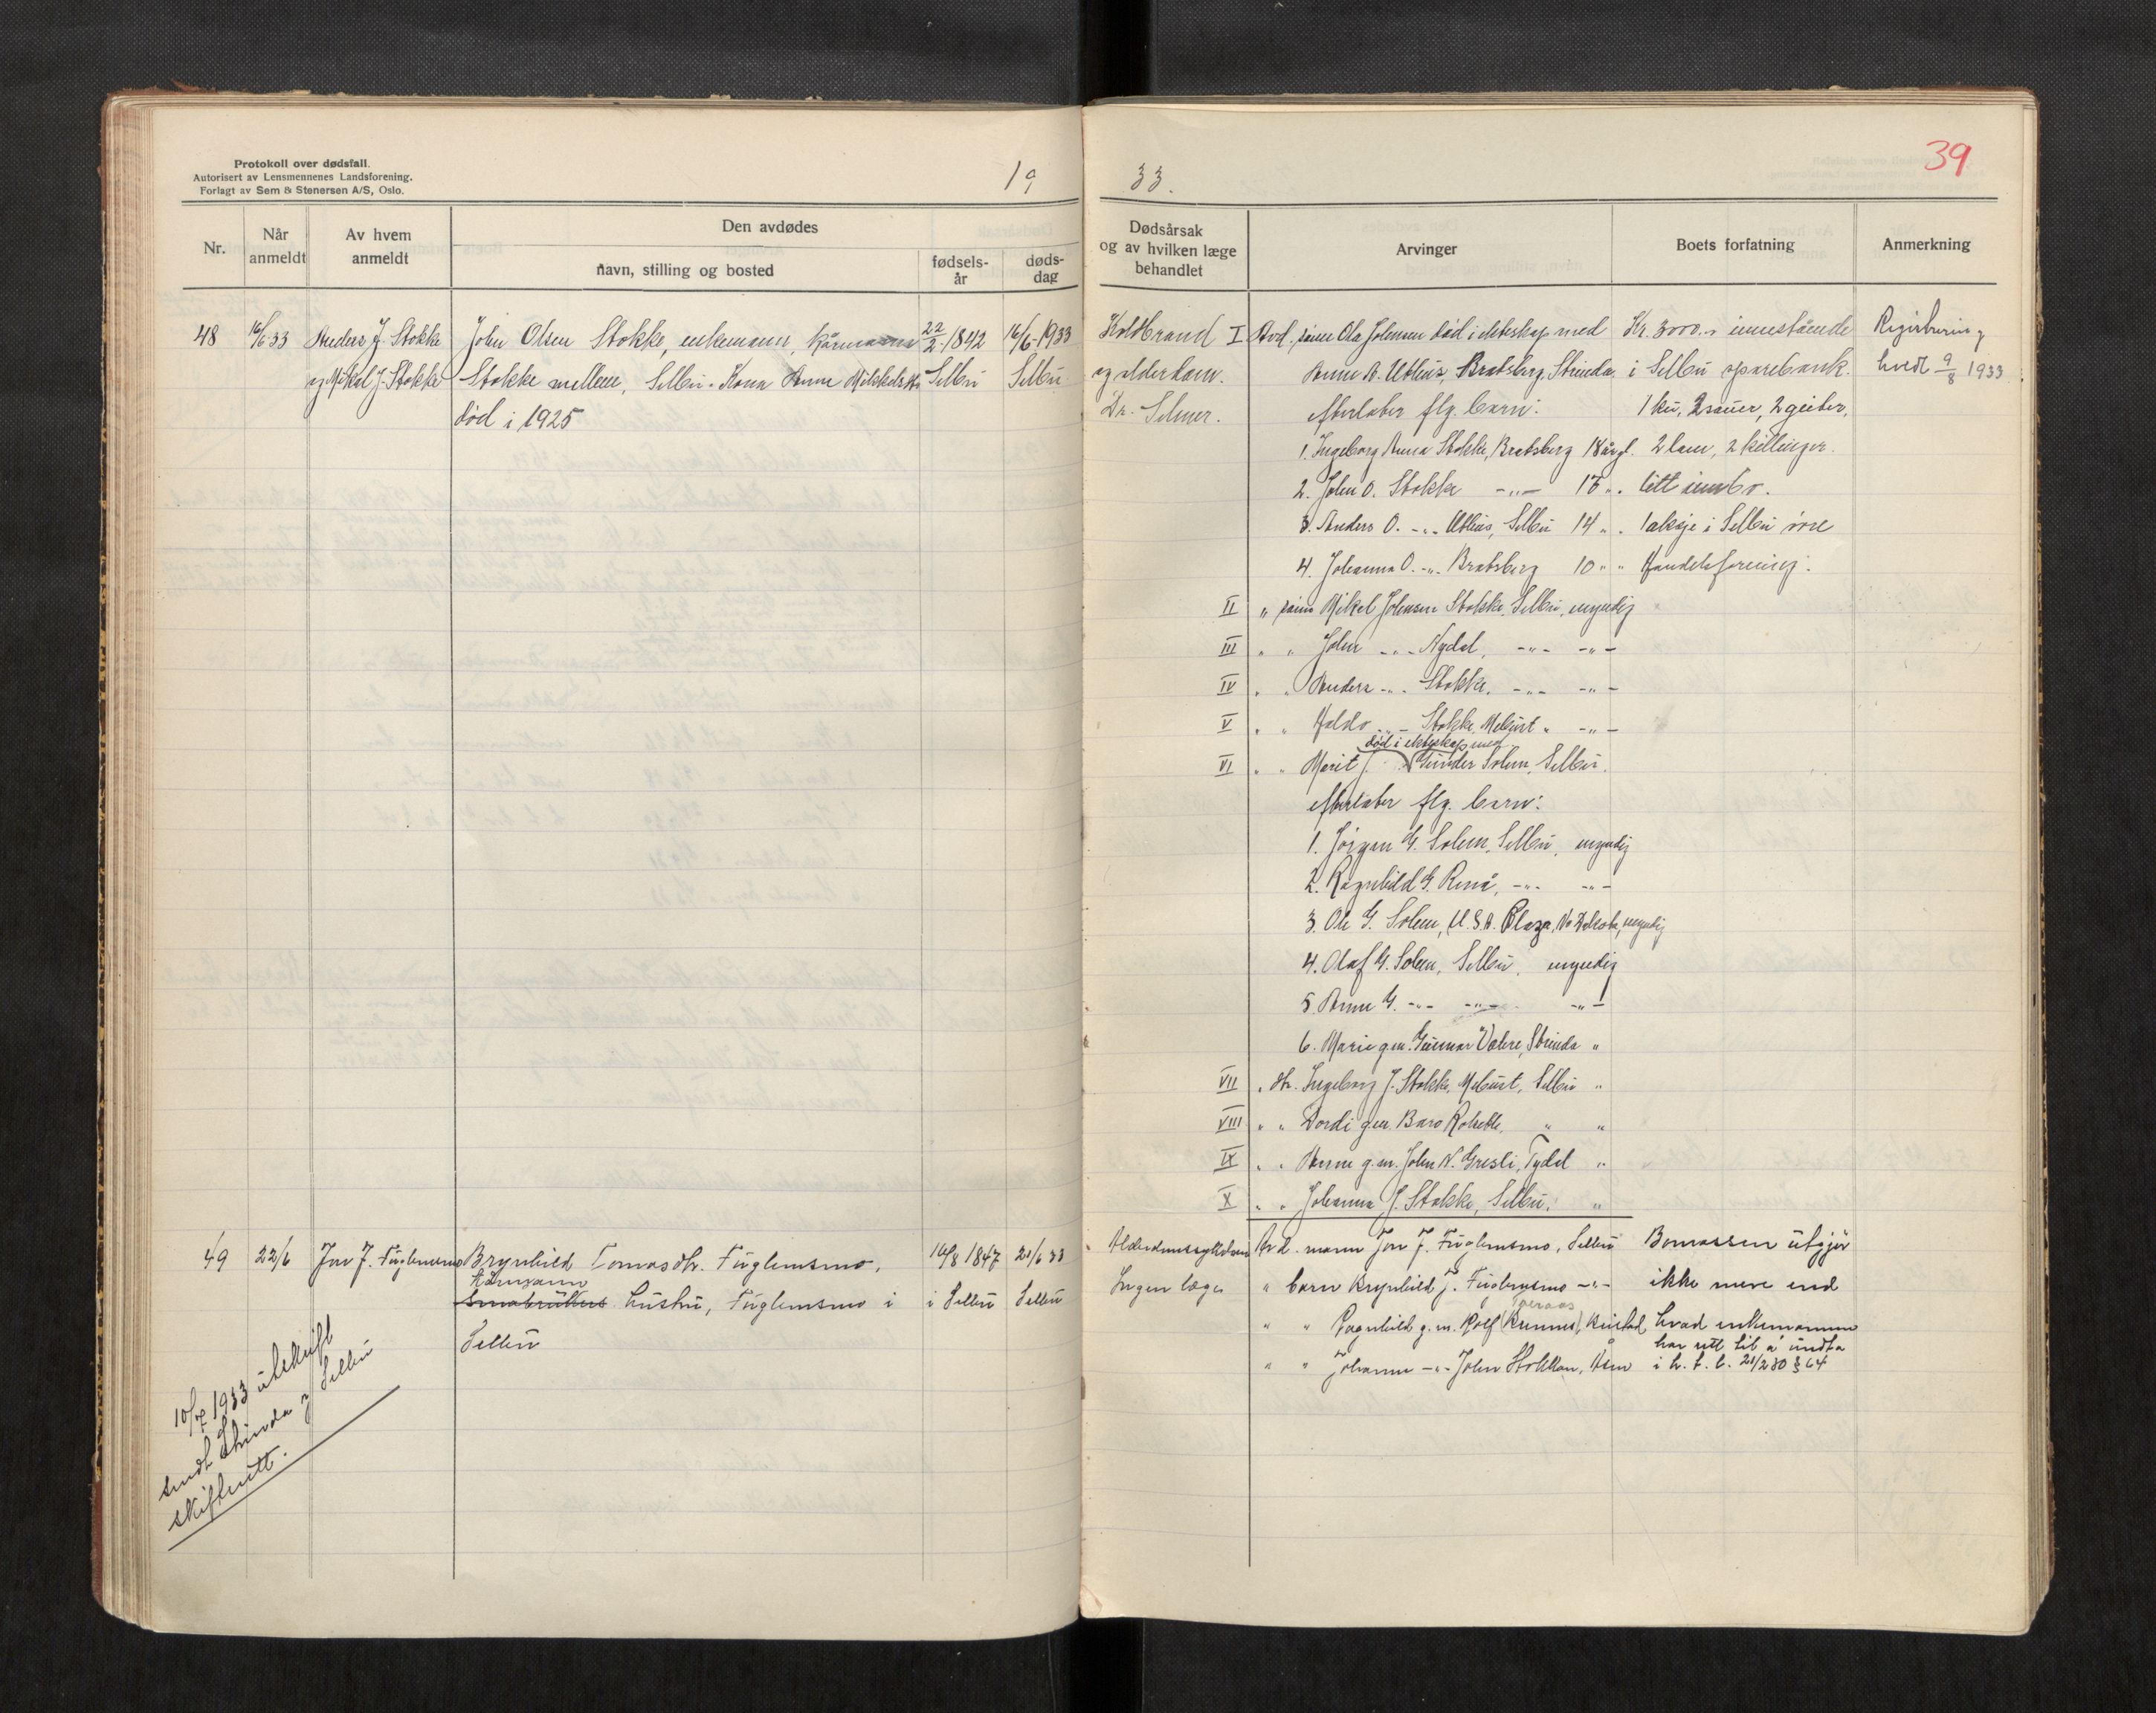 Protokoll over dødsfall.
Autorisert av Lensmennenes Landsforening.
Forlagt av Sem & Stenersen A/S, Oslo.
19
Nr.
Når anmeldt
Av hvem anmeldt
Den avdødes
navn, stilling og bosted
fødsels-
år
døds-
dag
48 16/6 33 Anders J. Stokke John Olsen Stokke, enkemann, kårmann 22/2-1842 16/6-1933
og Mikal J. Stokke Stokke mellem, Selbu. Kona Anne Mikkelsdtr Selbu Selbu
død i 1925
49 22/6 Jon J. Fuglemsmo Brynhild Tomasdtr. Fuglemsmo, 16/8 1847 21/6 33
Kårmann
Småbrukers hustru, Fuglemsmo i i Selbu Selbu
Selbu
10/7 1933 utskrift
sendt Strinda og Selbu
skifterett.
33.
39
Dødsårsak
og av hvilken læge
behandlet
Arvinger
Boets forfatning
Anmerkning
Koldbrand I Avd. sønn Ola Johnsen død i ekteskap med Kr. 3000.- innestående Registrering
og alderdom. Anne A. Uthus, Bratsberg, Strinda i Selbu sparebank. hvedt 9/8 1933
Dr. Selmer. efterlater flg. barn: 1 ku, 2 sauer, 2 geiter,
1. Ingeborg Anna Stokke, Bratsberg 18 år gl. 2 lam, 2 killinger.
2. John O. Stokke -"- 16 " . litt innbo.
3. Anders O. -"- Uthus, Selbu 14 " . 1 aksje i Selbu øvre
4. Johanna O. -"- Bratsberg 10 " " Handelsforening.
II " sønn Mikal Johnsen Stokke, Selbu, myndig
III " " John -"- Nydal, -"- -"-
IV " " Anders -"- Stokke, -"- -"-
V " " Haldo -"- Stokke, Mebust " -"-
død i ekteskap med
VI " " Marit J. Gunder Solem, Selbu.
efterlater flg. barn:
1. Jørgen G. Solem, Selbu, myndig
2. Ragnhild G. Renå, -"- -"-
3. Ole G. Solem, U.S.A. Plaza, No Dakota, myndig
4. Olaf G. Solem, Selbu, myndig
5. Anne G. -"- -"- -"-
6. Marie gm. Gunnar Valere, Strinda "
VII " dtr. Ingeborg J. Stokke, Mebust, Selbu "
VIII " " Dordi gm. Baro Rolseth, " "
IX " " Anne g.m. John N. Gresli, Tydal "
X " " Johanna J. Stokke, Selbu. "
Alderdomssykdom Avd. mann Jon J. Fuglemsmo, Selbu Bomassen utgjør
Ingen læge " barn Brynhild J. Fuglemsmo -"- ikke mere end
" " Ragnhild g.m. Rolf Bustad hvad enkemannen
har rett til å undta
" " Johanna -"- John Stokkan, Åsen i h. t. l. 21/2 30 § 64